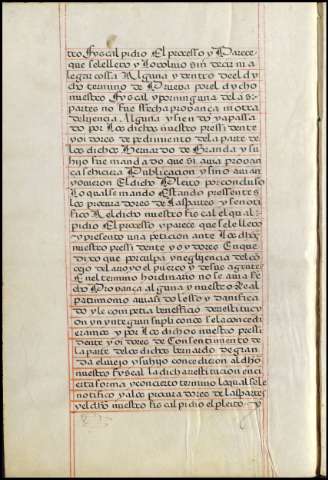 tro fyscal pidio El processo y Parece
que selelleto y lo bolvio sin decir ni a
legar cossa Alguna y dentro deel dy
cho termino de Prueva por el dy cho
nuestro Fyscal y por ninguna de las
partes no fue ffecha provança ni otra
deligencia. Alguna y siendo ya passa
do por Los dichos nuestro pressidente
y oidores de pedimiento de la parte de
los dichos Bernardo de Granda y su
hijo fue mandado que si avia provan
ça se hiciera Publicacion y sino avian
y ovieron El dicho Pleito por concluso
Lo qual se mando Estando pressente
los procuradores de las partes y se noti
fico Al dicho nuestro fiscal el qual
pidio El processo y parece que se le lleto
y presento una peticion ante Los dhos
nuestro pressidente y oydores En que
dixo que por culpa y negligencia del co
cejo del arroyo el puerco y de sus agentes
En el termino hordinario no se avia fe
cho Provança alguna y nuestro Real
patrimonio avia sido lesso y danifica
do y le competia beneficio de restitucion
yn yntegrun suplicono se la concedi
eramos y por Los dichos nuestro pressi
dente y oidores de Consentimiento de
la parte de los dichos bernardo de gran
da el viejo y su hijo concedieron al dho
nuestro fyscal la dicha restitucion en ci
erta forma y con cierto termino la qual se le
notifico y a los procuradores de las partes
y el dho nuestro fiscal pidio el pleito y